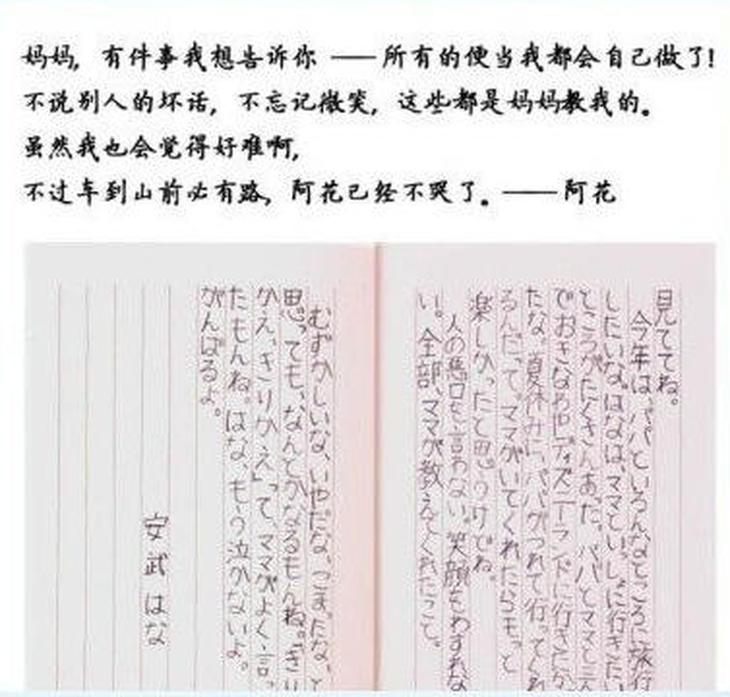 妈妈，有件事我想告诉你 ——所有的便当我都会自己做了！
不说别人的坏话，不忘记微笑，这些都是妈妈教我的。
虽然我也会觉得好难啊，
不过车到山前必有路，阿花已经不哭了。——阿花
見ててね。
今年は、パパといろんなところに旅行
したいな。はなは、ママといっしょに行きたい
ところがたくさんあった。パパとママと三人
でおきなわやディズニーランドに行きたか
たな。夏休みに、パパがつれて行ってくれ
るんだって。ママがいてくれたらもっと
楽しかったと思うけどね。
人の悪口を言わない。笑顔をわすれな
い。全部、ママが教えてくれたこと。
むずかしいな、いやだな、つまったな、と
思っても、なんとかなるもんね。「きり
かえ、きりかえ」って、ママがよく言っ
たもんね。はな、もう泣かないよ。
がんばるよ。
安武はな